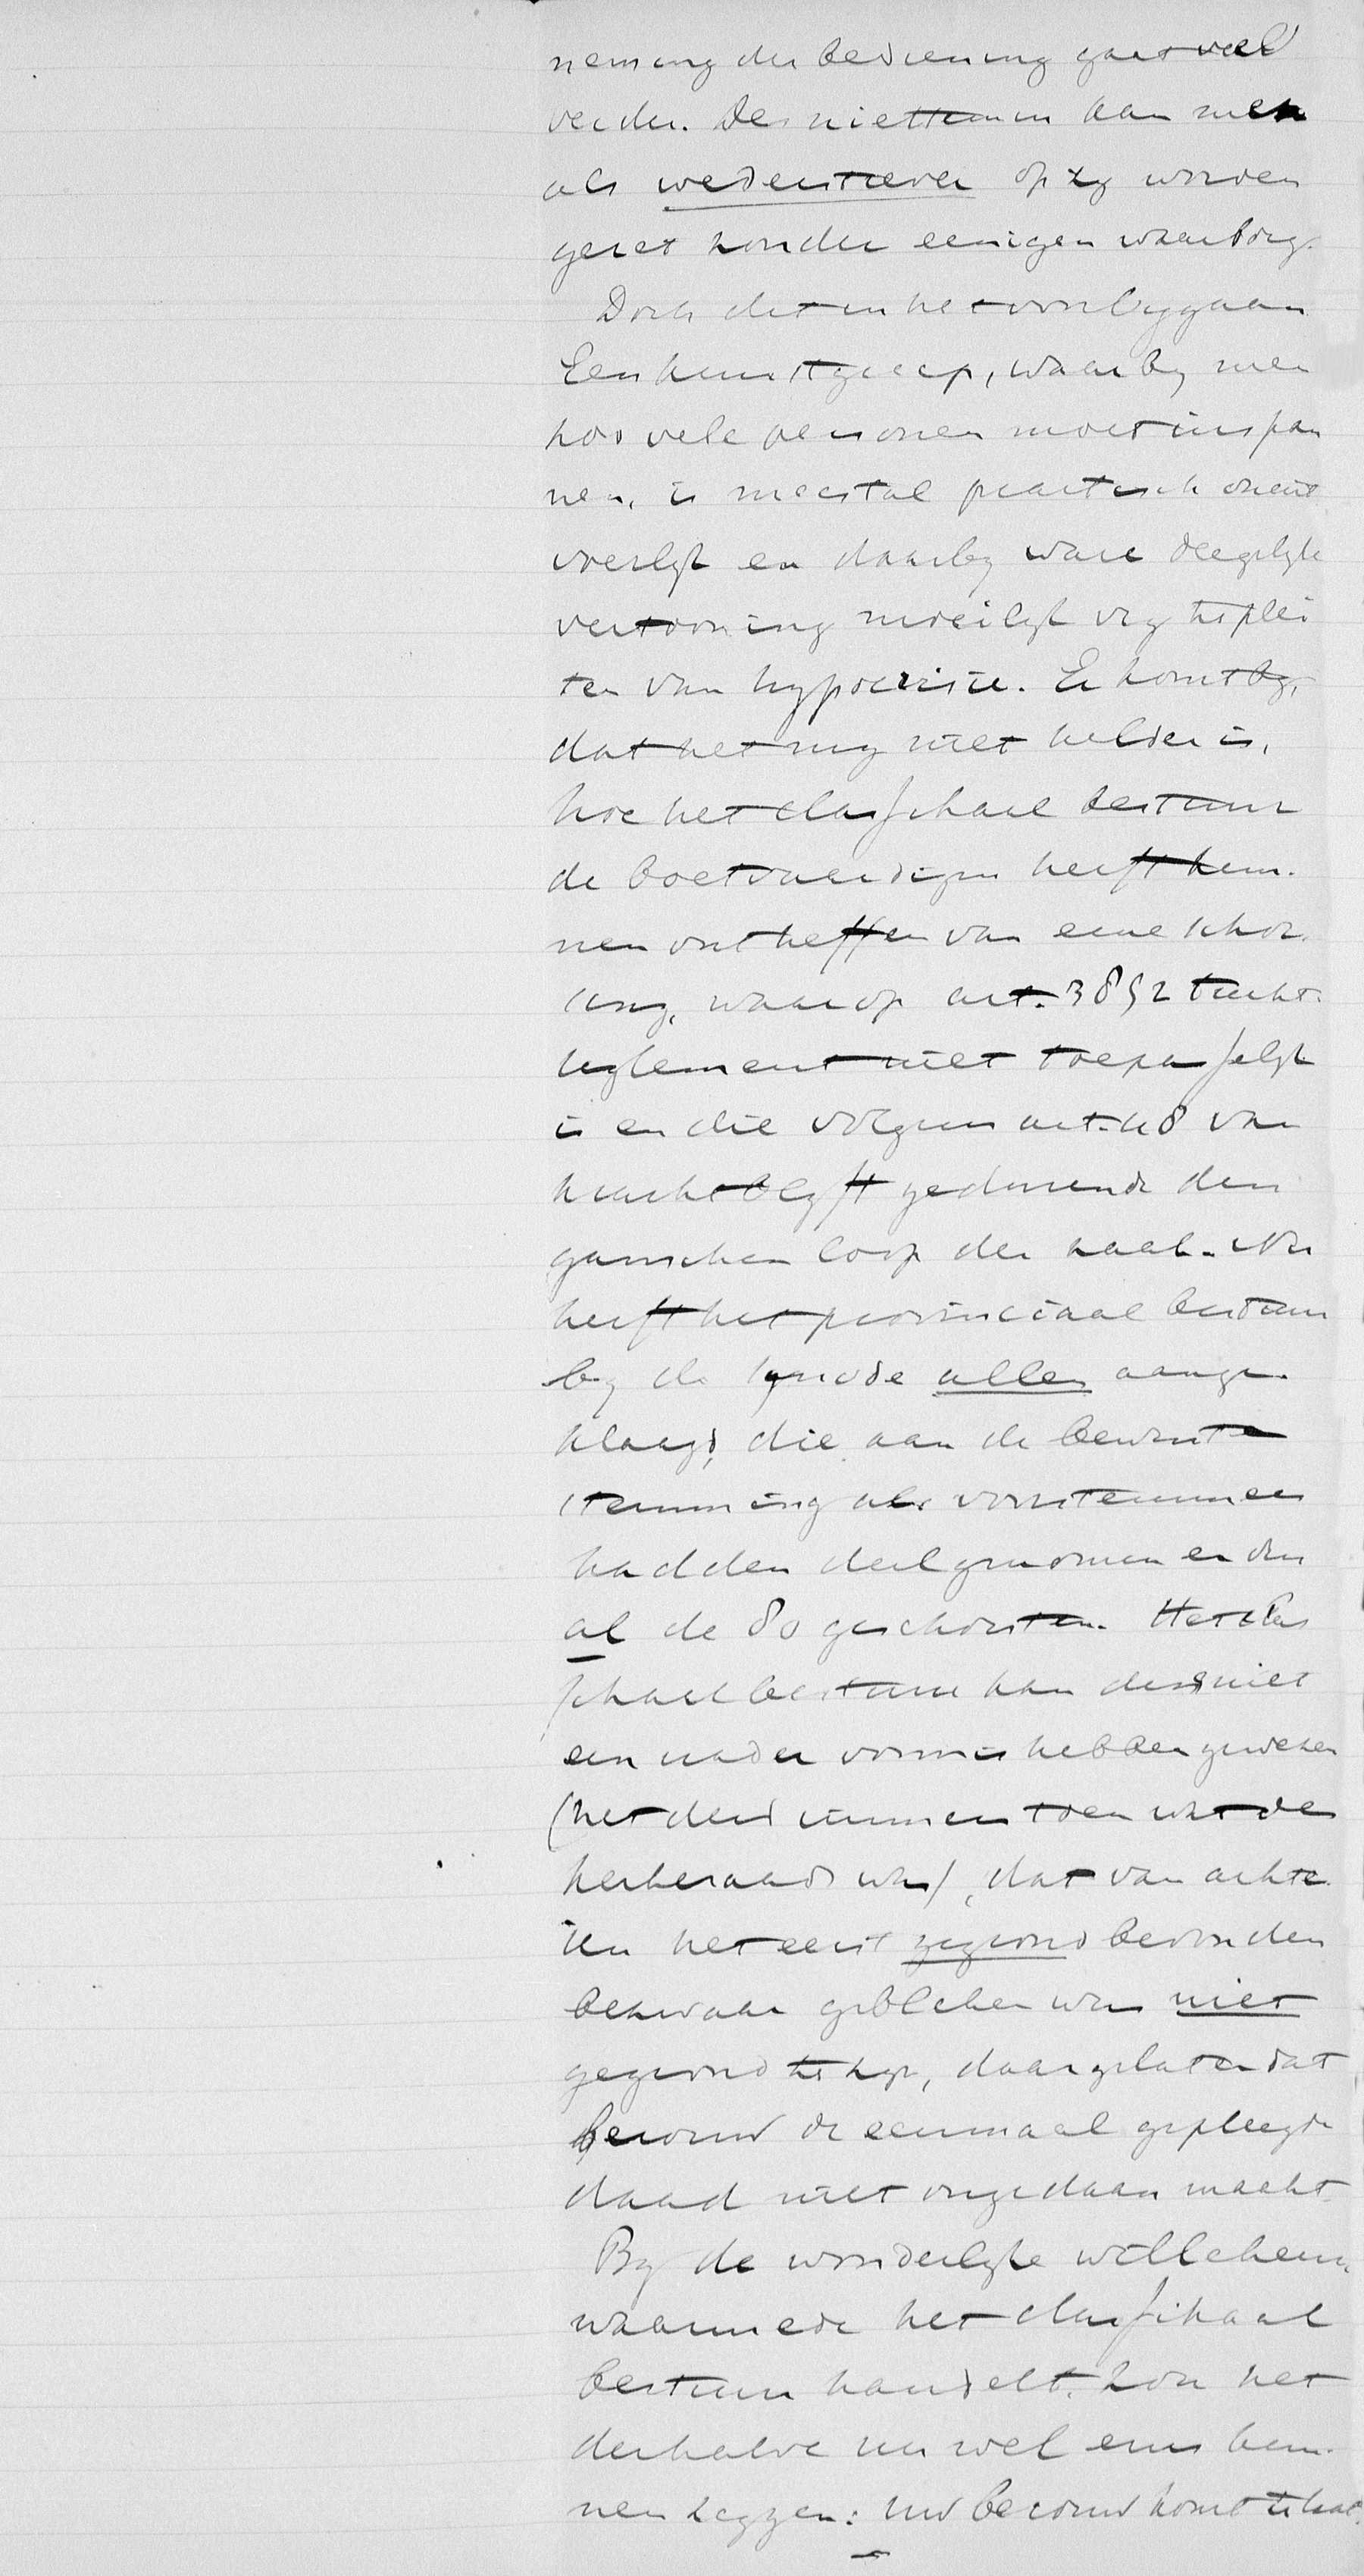 neming der bediening gaat veel
verder. Des niettemin kan men
als wederstrever op zy worden
gezet zonder eenigen waarborg.
Doch dit in het voorbygaan
Een kunstgreep, waarby men
zoo vele personen moet inspan
nen, is meestal practisch onuit
voerlyk en daarby ware deegelyke
vertooning moeilyk vry te plei
ten van hypocrisie. Er komt by,
dat het my niet helder is,
hoe het classikaal bestuur
de boetvaardigen heeft kun-
nen ontheffen van eene schor
sing, waarop art. 38 § 2 tucht-
reglement niet toepasselyk
is en die volgens art. 48 van
kracht blyft gedurende den
ganschen loop der zaak. Nu
heeft het provinciaal bestuur
by de synode allen aange-
klaagd, die aan de bewuste
stemming als voorstemmers
hadden deelgenomen en dus
al de 80 geschorsten. Het clas
sikaal bestuur kan dus niet
een nader vonnis hebben gewezen
(het deed immers toen wat des
kerkeraads was), dat van achte
ren het eerst gegrond bevonden
bezwaar gebleken was niet
gegrond te zyn, daargelaten dat
berouw de eenmaal gepleegde
daad niet ongedaan maakt
By de wonderlyke willekeur,
waarmede het classikaal
bestuur handelt, zou het
derhalve nu wel eens kun-
nen zeggen: uw berouw komt te laat.